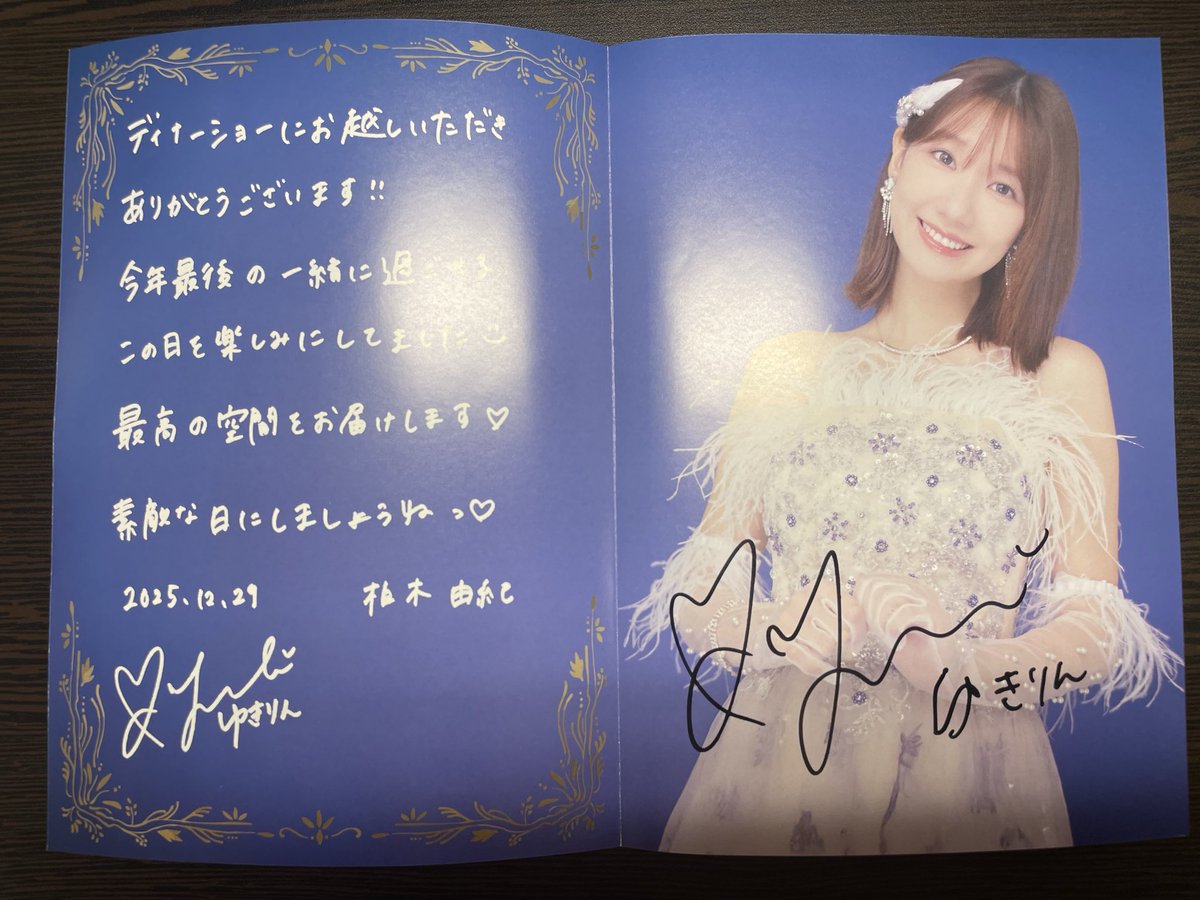 ディナーショーにお越しいただき
ありがとうございます!!
今年最後の一緒に過ごせる
この日を楽しみにしてました
最高の空間をお届けします♡
素敵な日にしましょうねっ♡
2025.12.29 柏木 由紀
ゆきりん
ゆきりん